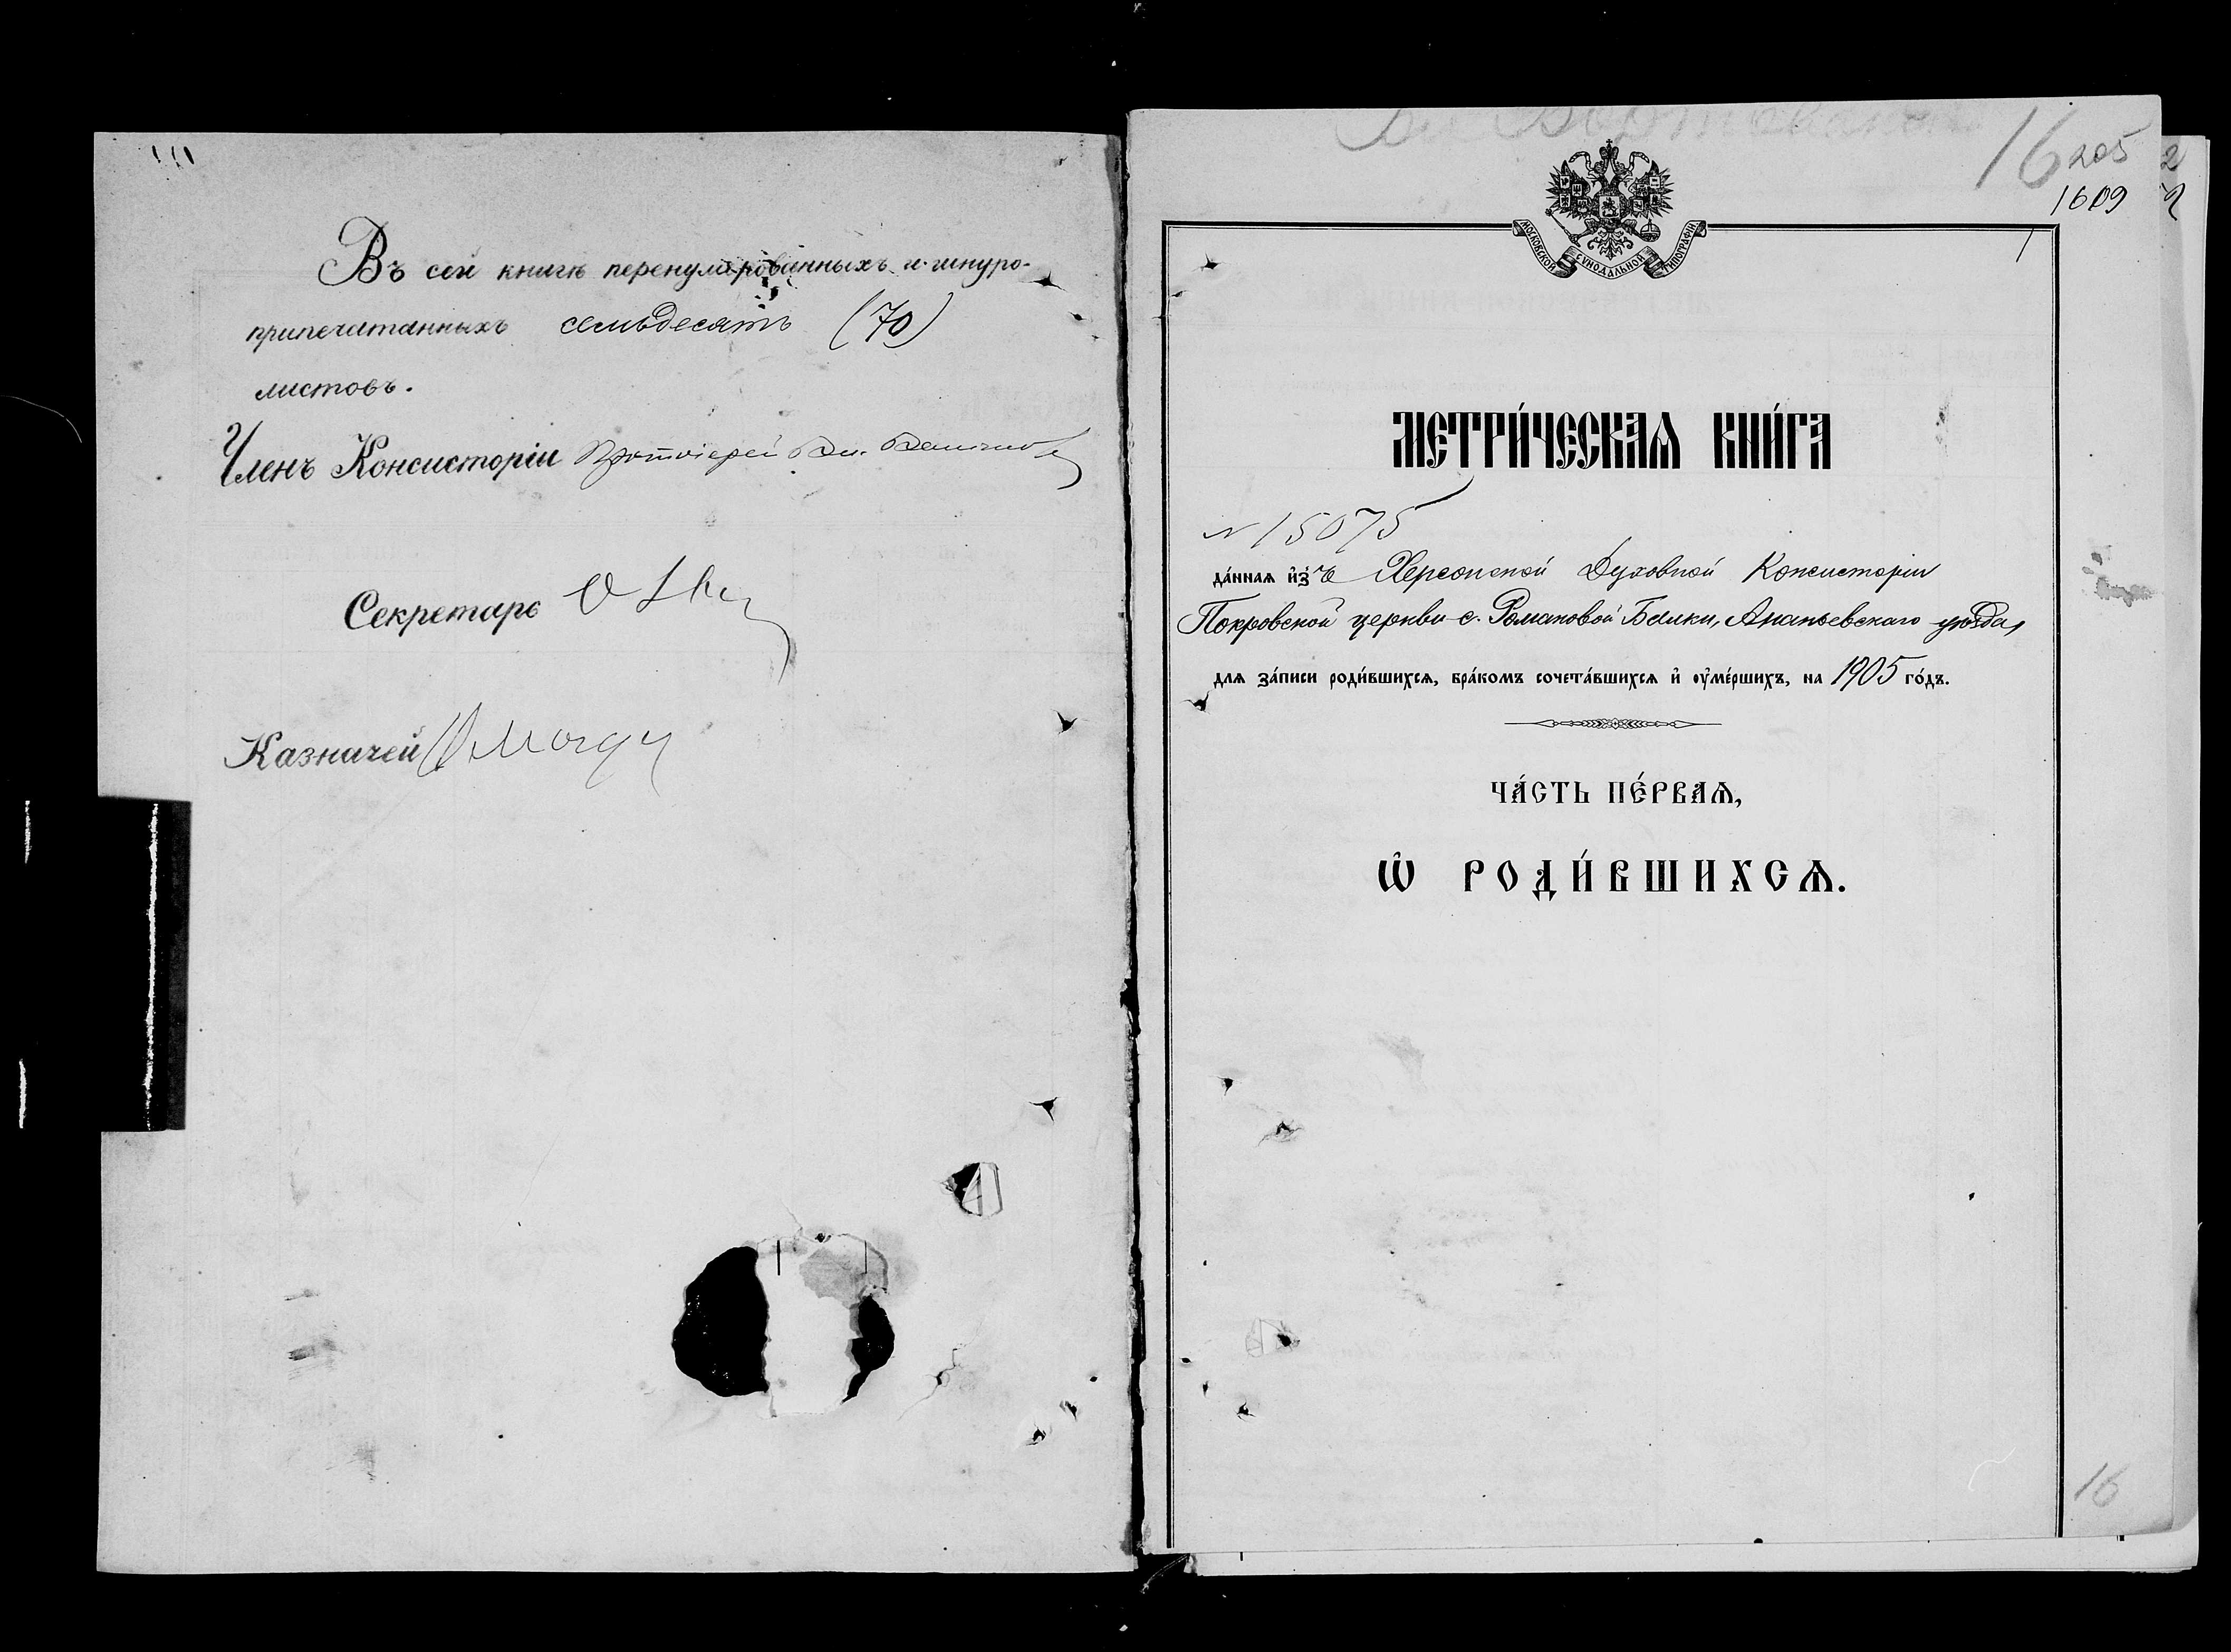 Въ сей книгѣ перенумерованныхъ и шнуро-
припечатанныхъ семьдесятъ (70)
листовъ.
Членъ Консисторіи Протоіерей
Секретарь
Казначей
16 205
1609
1
МОСКОВСКОЙ СѴНОДАЛЬНОЙ ТИПОГРАФІИ
МЕТРИ́ЧЕСКАѦ КНИ́ГА
№ 15075
да́ннаѧ и҆зъ Херсонской Духовной Консисторіи
Покровской церкви с. Романовой Балки, Ананьевскаго уѣзда,
длѧ за́писи роди́вшихсѧ, бра́комъ сочета́вшихсѧ и҆ ᲂу҆ме́ршихъ, на 1905 го́дъ.
ЧА́СТЬ ПЕ́РВАѦ,
Ѡ҆ РОДИ́ВШИХСѦ.
16